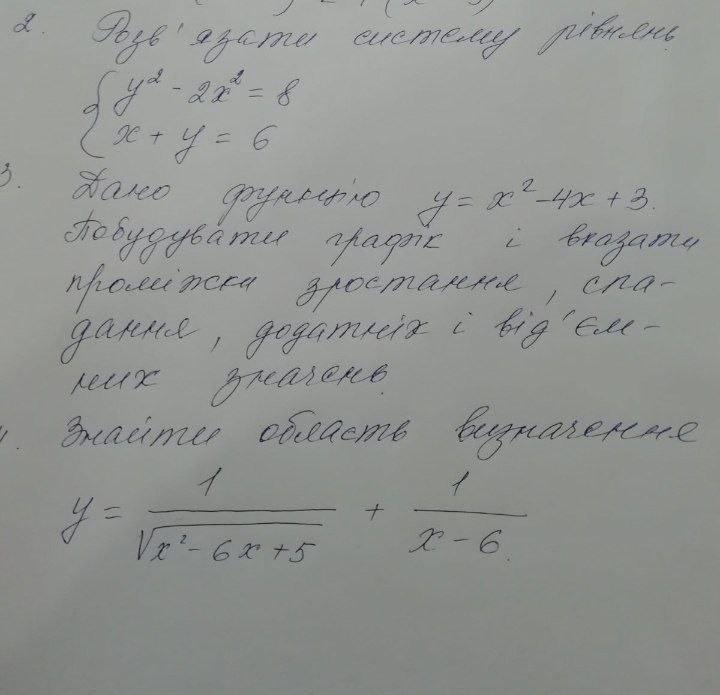 2. Розв'язати систему рівнянь
y² - 2x² = 8
x + y = 6
3. Дано функцію y = x² - 4x + 3.
Побудувати графік і вказати
проміжки зростання, спа-
дання, додатніх і від'єм-
них значень.
Знайти область визначення
y = 1/√(x² - 6x + 5) + 1/(x - 6).